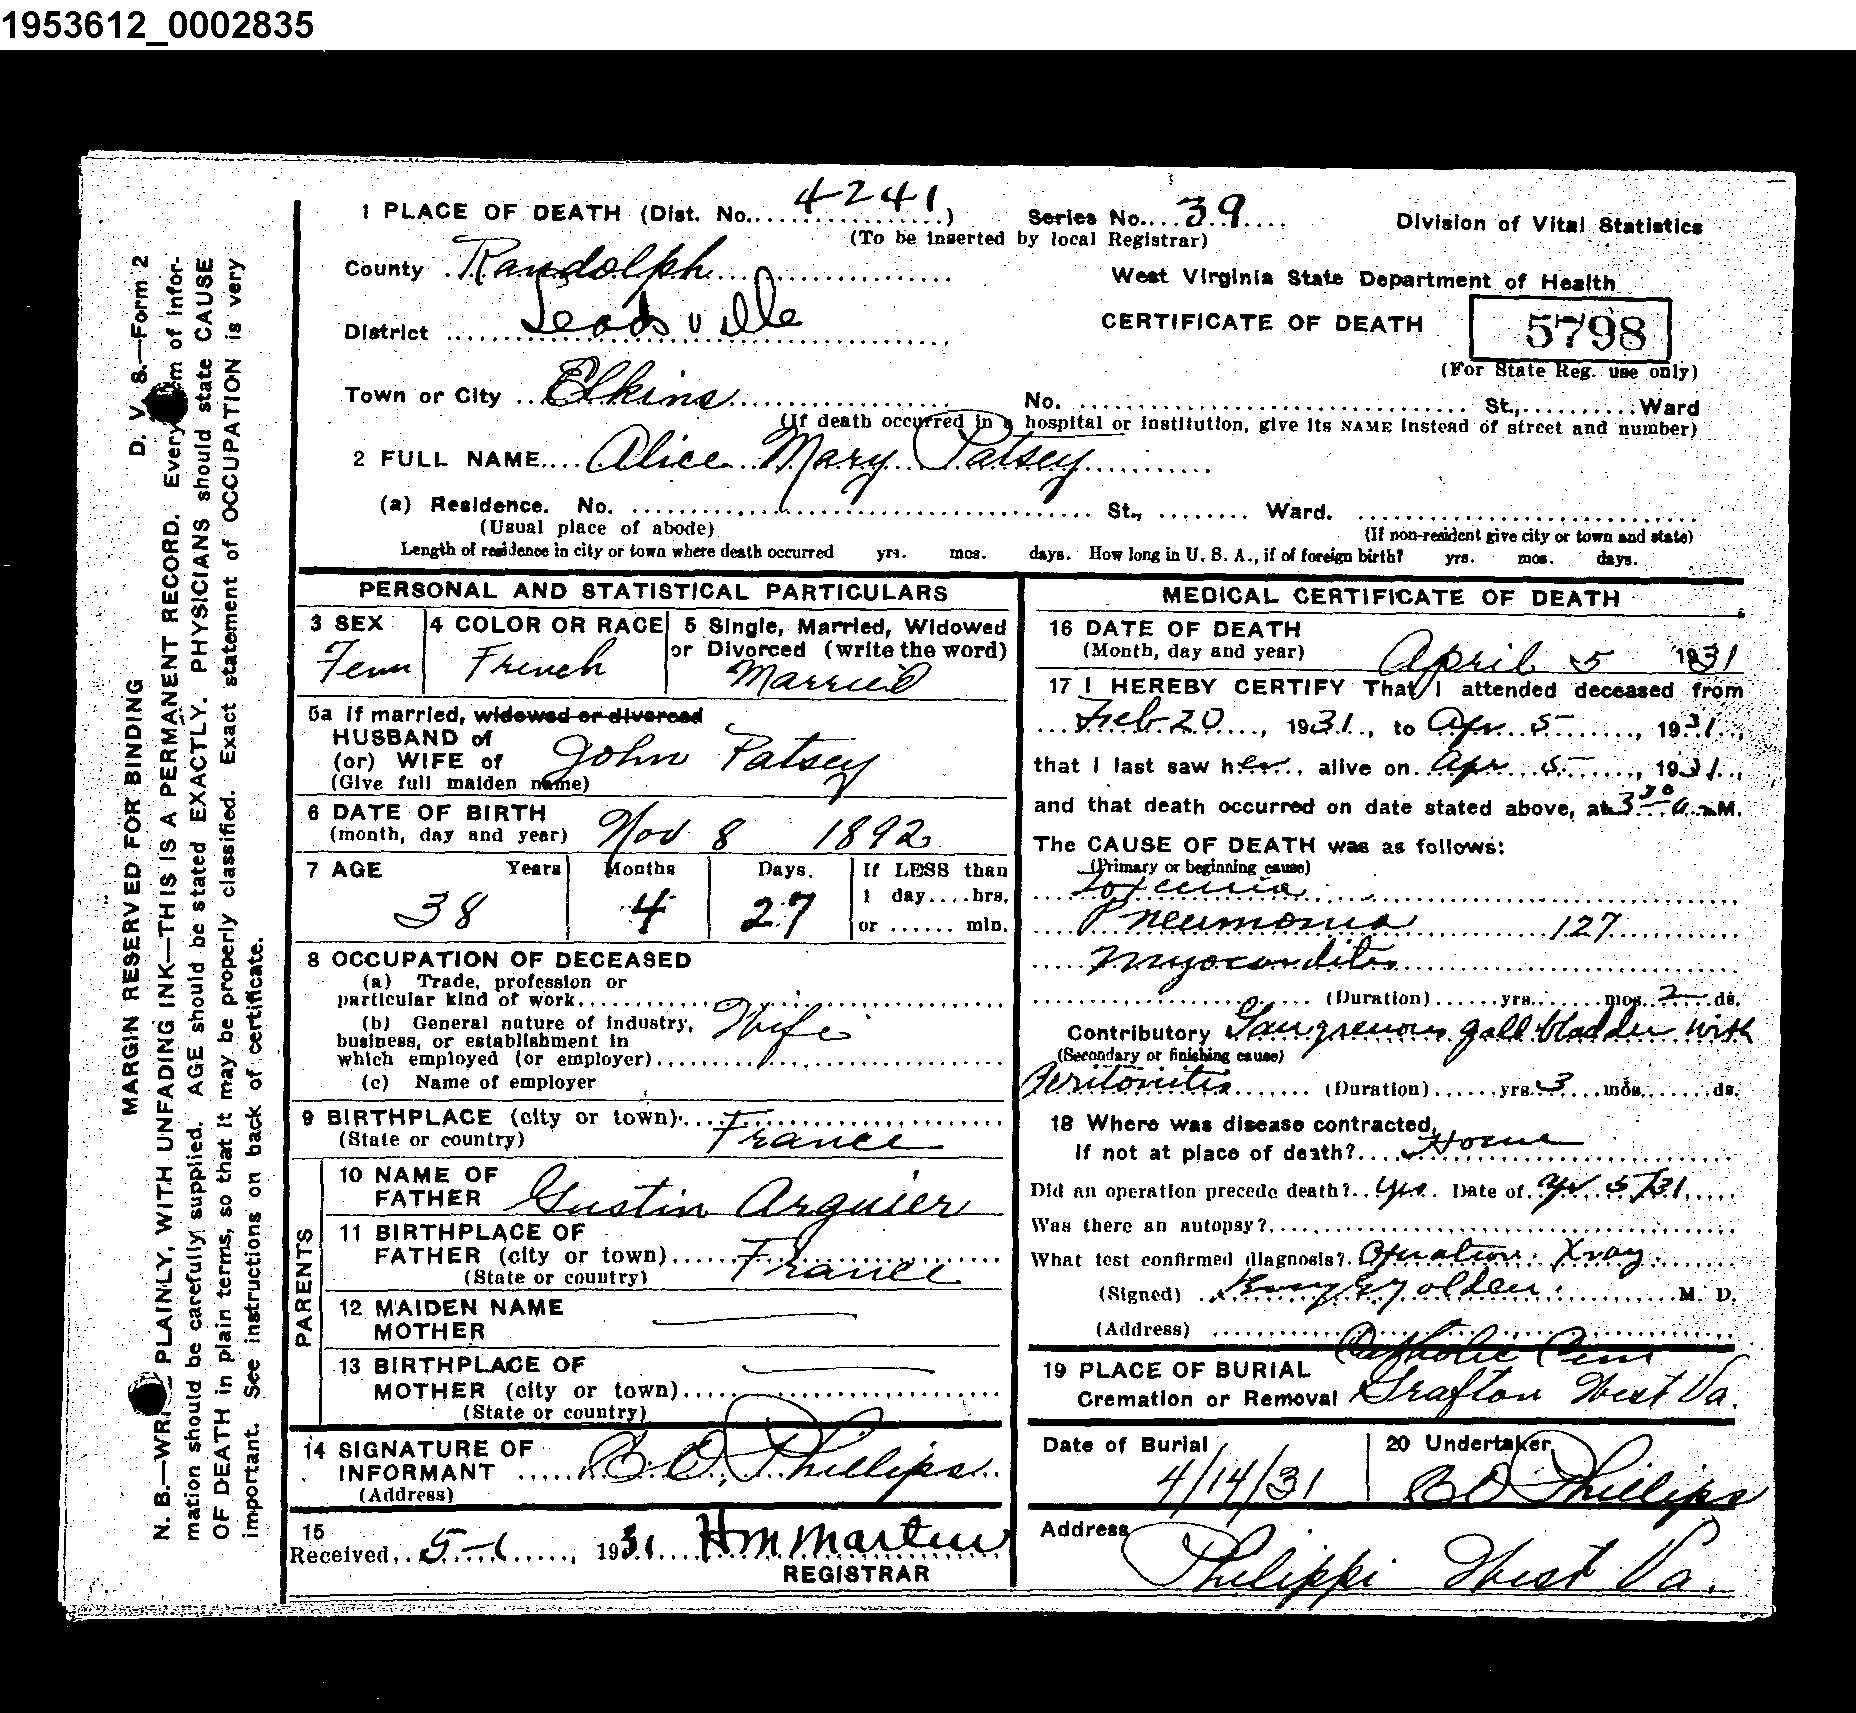 1953612_0002835
1 PLACE OF DEATH (Dist. No. 4241)
Series No. 39
Division of Vital Statistics
(To be inserted by local Registrar)
County Randolph
West Virginia State Department of Health
District Leadsville
CERTIFICATE OF DEATH
5798
(For State Reg. use only)
Town or City Elkins
No. St., Ward
(If death occurred in a hospital or institution, give its NAME instead of street and number)
2 FULL NAME Alice Mary Patsey
(a) Residence. No. St., Ward.
(Usual place of abode)
(If non-resident give city or town and state)
Length of residence in city or town where death occurred yrs. mos. days. How long in U. S. A., if of foreign birth? yrs. mos. days.
PERSONAL AND STATISTICAL PARTICULARS
3 SEX
Fem
4 COLOR OR RACE
French
5 Single, Married, Widowed
or Divorced (write the word)
Married
5a If married, widowed or divorced
HUSBAND of
(or) WIFE of John Patsey
(Give full maiden name)
6 DATE OF BIRTH
(month, day and year) Nov 8 1892
7 AGE Years Months Days. If LESS than
1 day....hrs.
38 4 27
or ...... min.
8 OCCUPATION OF DECEASED
(a) Trade, profession or
particular kind of work
(b) General nature of industry,
business, or establishment in
which employed (or employer) Wife
(c) Name of employer
9 BIRTHPLACE (city or town)
(State or country) France
PARENTS
10 NAME OF
FATHER Gustin Arguier
11 BIRTHPLACE OF
FATHER (city or town) France
(State or country)
12 MAIDEN NAME
MOTHER
13 BIRTHPLACE OF
MOTHER (city or town)
(State or country)
14 SIGNATURE OF
INFORMANT B. O. Phillips
(Address)
15
Received 5-1, 1931 H M Martin
REGISTRAR
MEDICAL CERTIFICATE OF DEATH
16 DATE OF DEATH
(Month, day and year) April 5 1931
17 I HEREBY CERTIFY That I attended deceased from
Feb 20, 1931, to Apr 5, 1931,
that I last saw her alive on Apr 5, 1931,
and that death occurred on date stated above, at 3 30 a. M.
The CAUSE OF DEATH was as follows:
(Primary or beginning cause)
Toxemia
Pneumonia 127
Myocarditis
(Duration) yrs. mos. 2 ds.
Contributory Gangrenous gall bladder with
(Secondary or finishing cause)
Peritonitis (Duration) yrs. 3 mos. ds.
18 Where was disease contracted,
if not at place of death? Home
Did an operation precede death? Yes Date of 5/31
Was there an autopsy?
What test confirmed diagnosis? Operation. Xray
(Signed) Golden M. D.
(Address)
19 PLACE OF BURIAL
Catholic Cem
Cremation or Removal Grafton West Va.
Date of Burial
4/14/31
20 Undertaker
B O Phillips
Address
Philippi West Va.
MARGIN RESERVED FOR BINDING D. V. S.—Form 2
N. B.—WRITE PLAINLY, WITH UNFADING INK—THIS IS A PERMANENT RECORD. Every item of infor-
mation should be carefully supplied. AGE should be stated EXACTLY. PHYSICIANS should state CAUSE
OF DEATH in plain terms, so that it may be properly classified. Exact statement of OCCUPATION is very
important. See instructions on back of certificate.